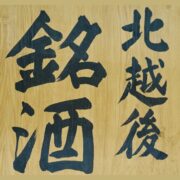 北越後
銘酒